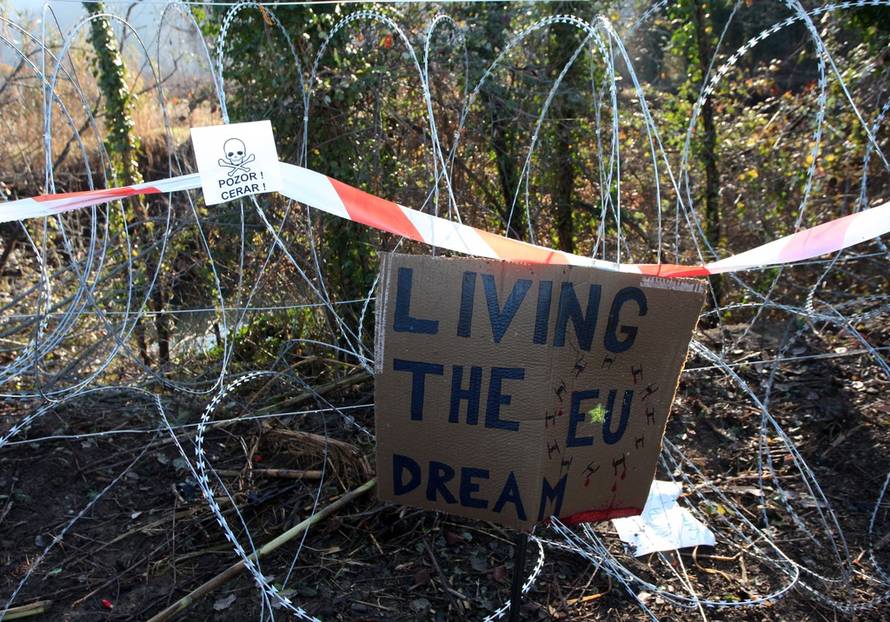 POZOR !
CERAR !
LIVING
THE EU
DREAM